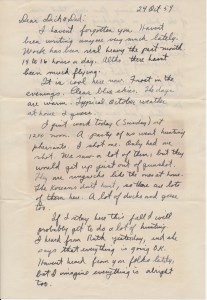 24 Oct 54
Dear Dick & Dad:
I haven't forgotten you. Haven't
been writing anyone very much lately.
Work has been real heavy the past month
14 to 16 hours a day. Altho there hasn't
been much flying.
It is cool here now. Frost in the
evenings. Clear blue skies. The days
are warm. Typical October weather
at home I guess.
I quit work today (Sunday) at
1200 noon. A party of us went hunting
pheasants. I shot me. Only had one
shot. We saw a lot of them but they
would get up just out of gunshot.
They are ringnecks like the ones at home.
The Koreans don't hunt, so there are lots
of them here. A lot of ducks and geese
too.
If I stay here this fall I will
probably get to do a lot of hunting.
I heard from Ruth yesterday, and she
says that everything is going O.K.
Haven't heard from you folks lately,
but I imagine everything is alright
too.